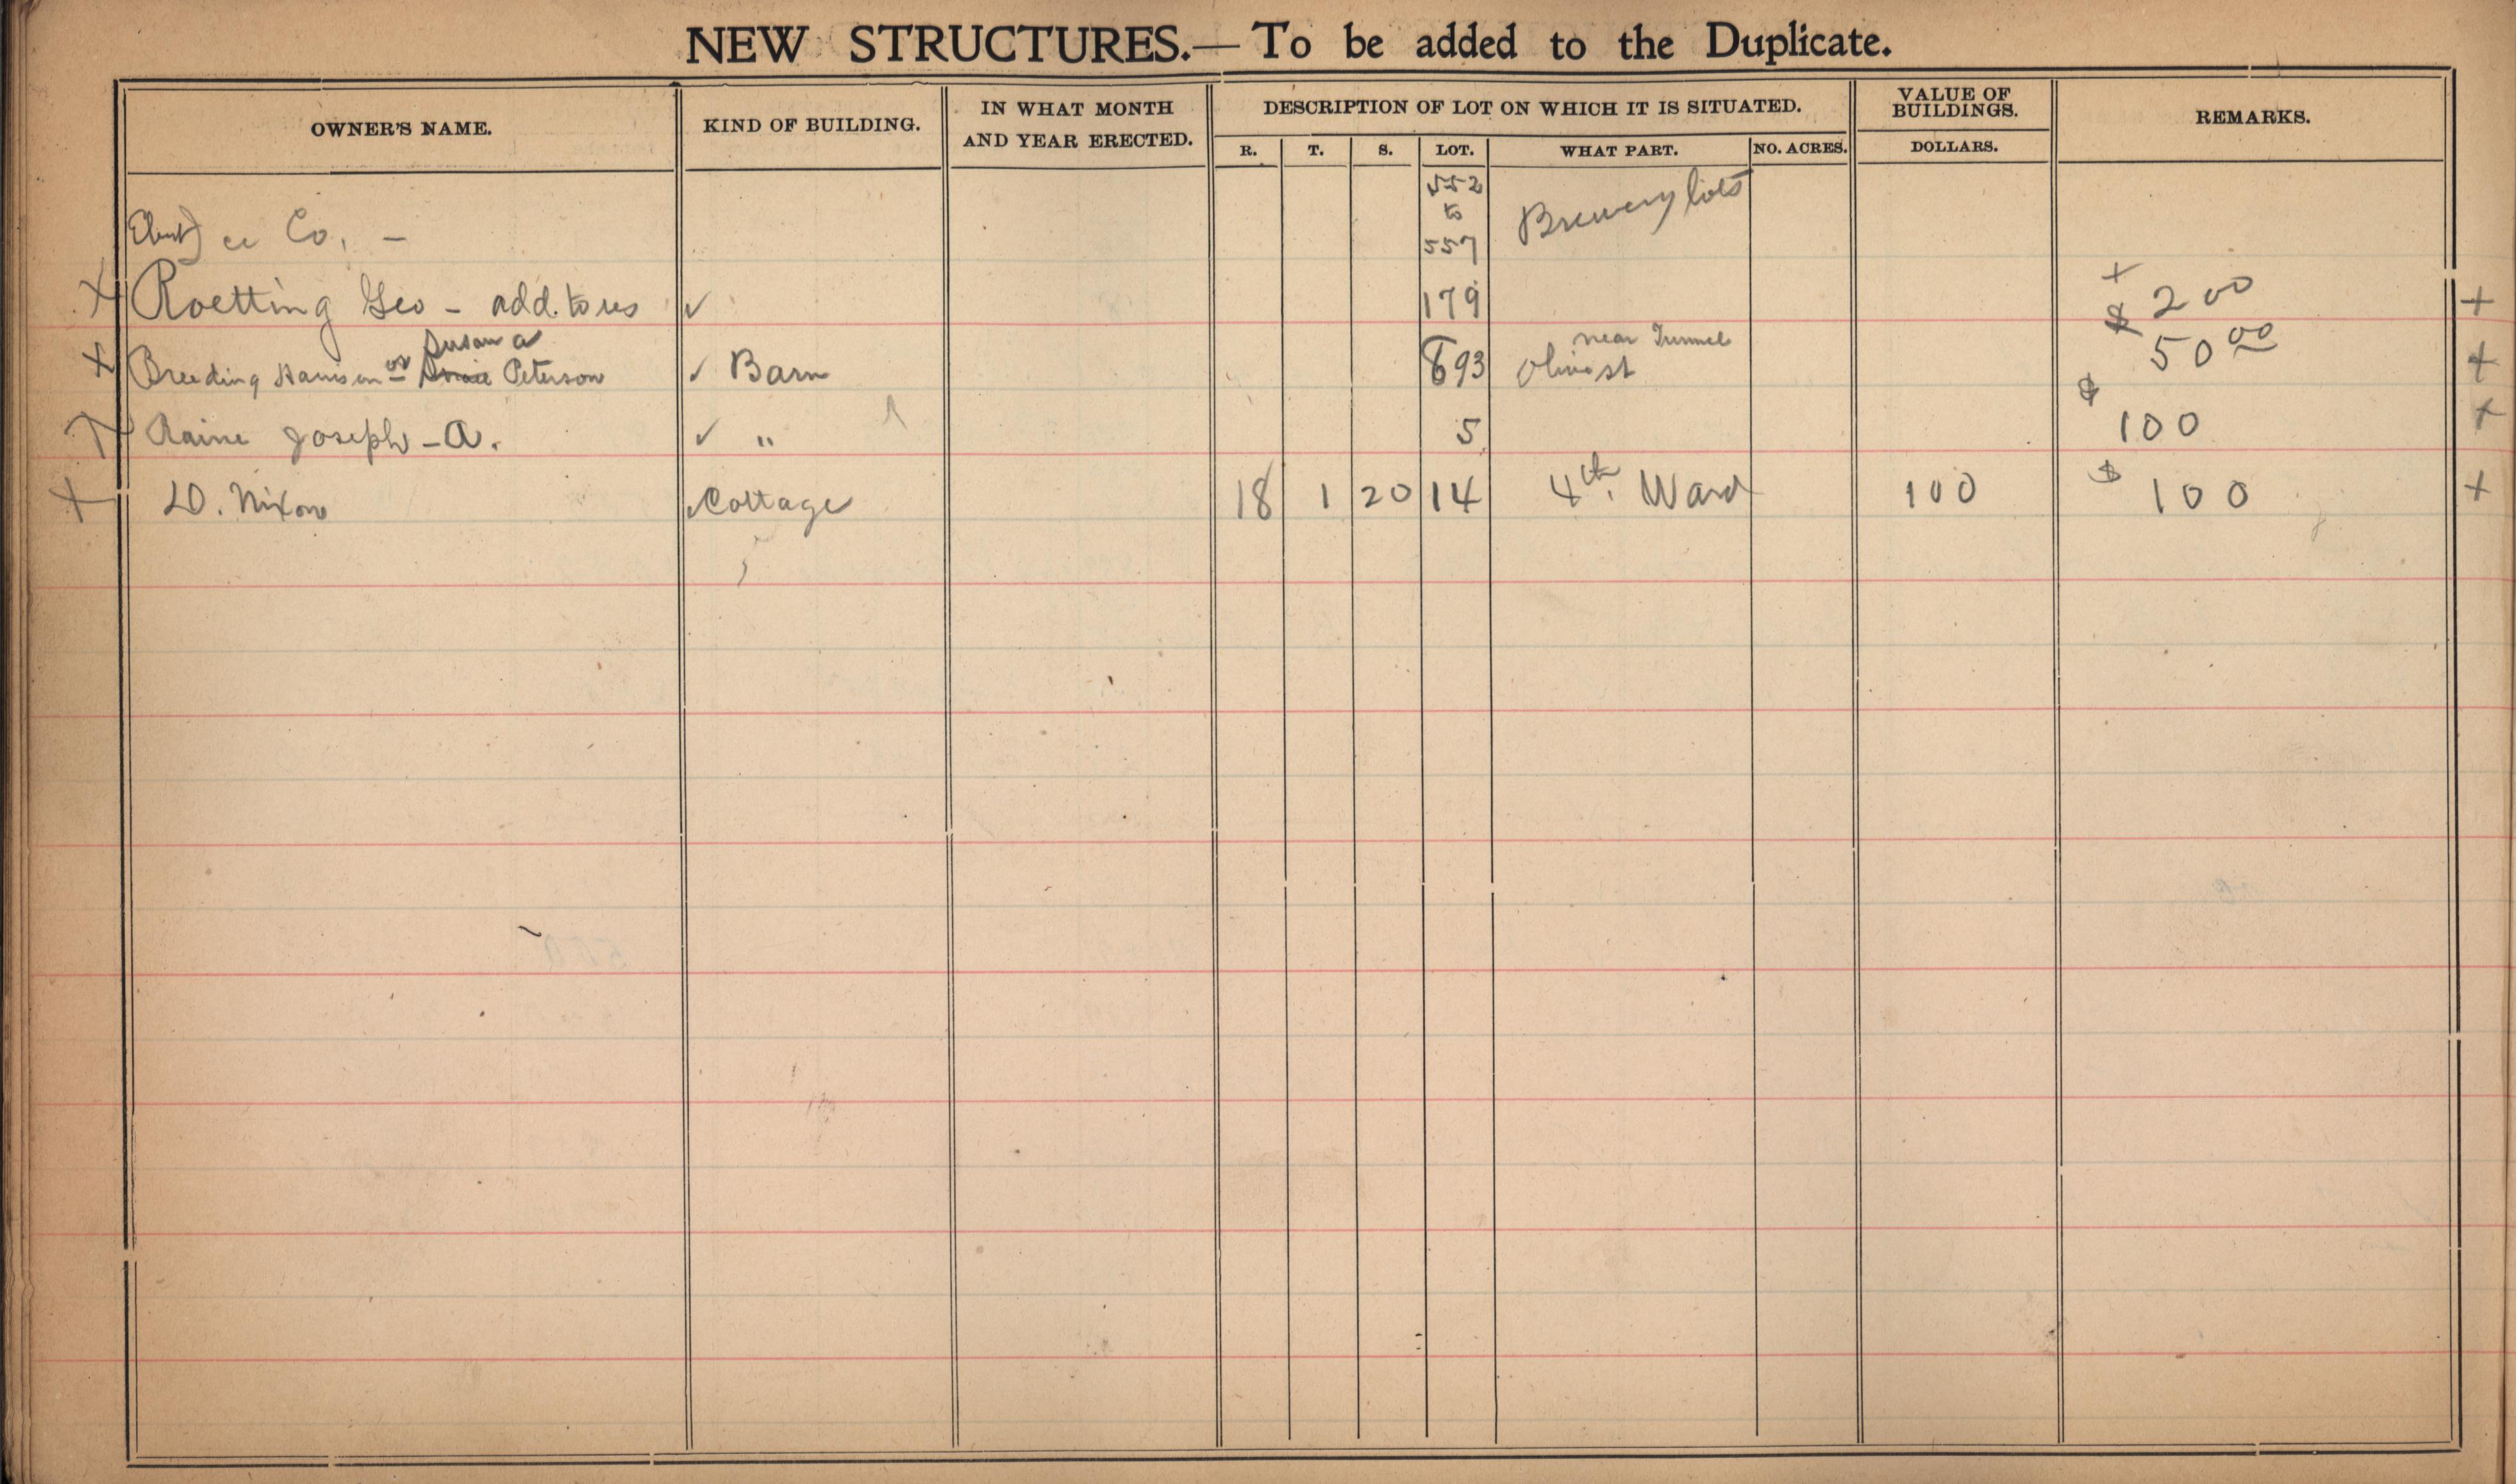 NEW STRUCTURES.— To be added to the Duplicate.
OWNER'S NAME.
KIND OF BUILDING.
IN WHAT MONTH
AND YEAR ERECTED.
DESCRIPTION OF LOT ON WHICH IT IS SITUATED.
R. T. S. LOT. WHAT PART. NO. ACRES.
VALUE OF
BUILDINGS.
DOLLARS.
REMARKS.
552
to
557
Brewery lots
Co. —
X Roetting Geo - add. to res ✓ 179 + $ 200 +
Susan a
near Tunnel
X Breeding Harrison or Peterson ✓ Barn 693 Olive st 50 00 +
X Raine Joseph - A. ✓ " 5 $ 100 +
X D. Nixon ✓ Cottage 18 1 20 14 4th. Ward 100 $ 100 +